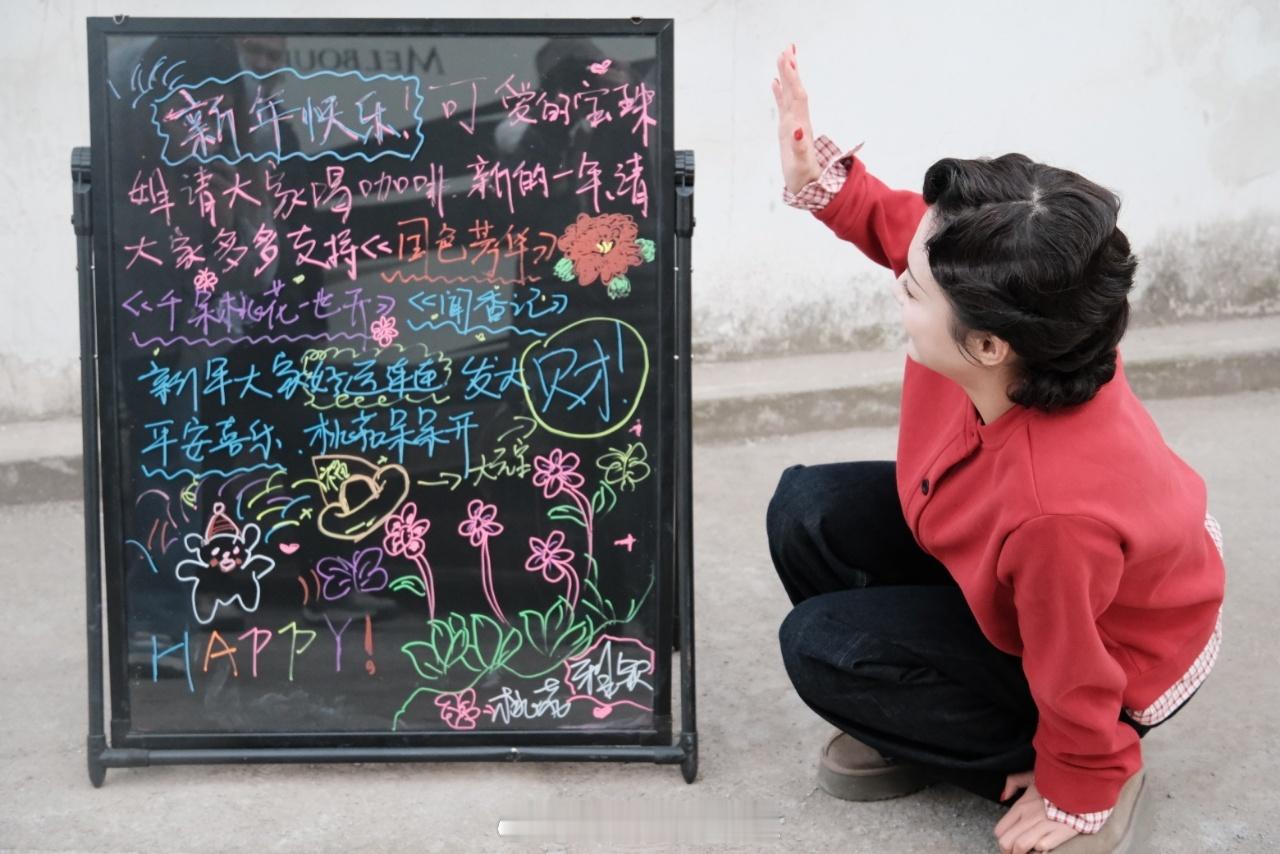 MELBOU
新年快乐! 可爱的宝珠
姐请大家喝咖啡.新的一年,请
大家多多支持《国色芳华》
《千朵桃花一世开》《闻香记》
新年大家好运连连 发大财!
平安喜乐、桃花朵朵开
→大元宝
HAPPY!
桃花